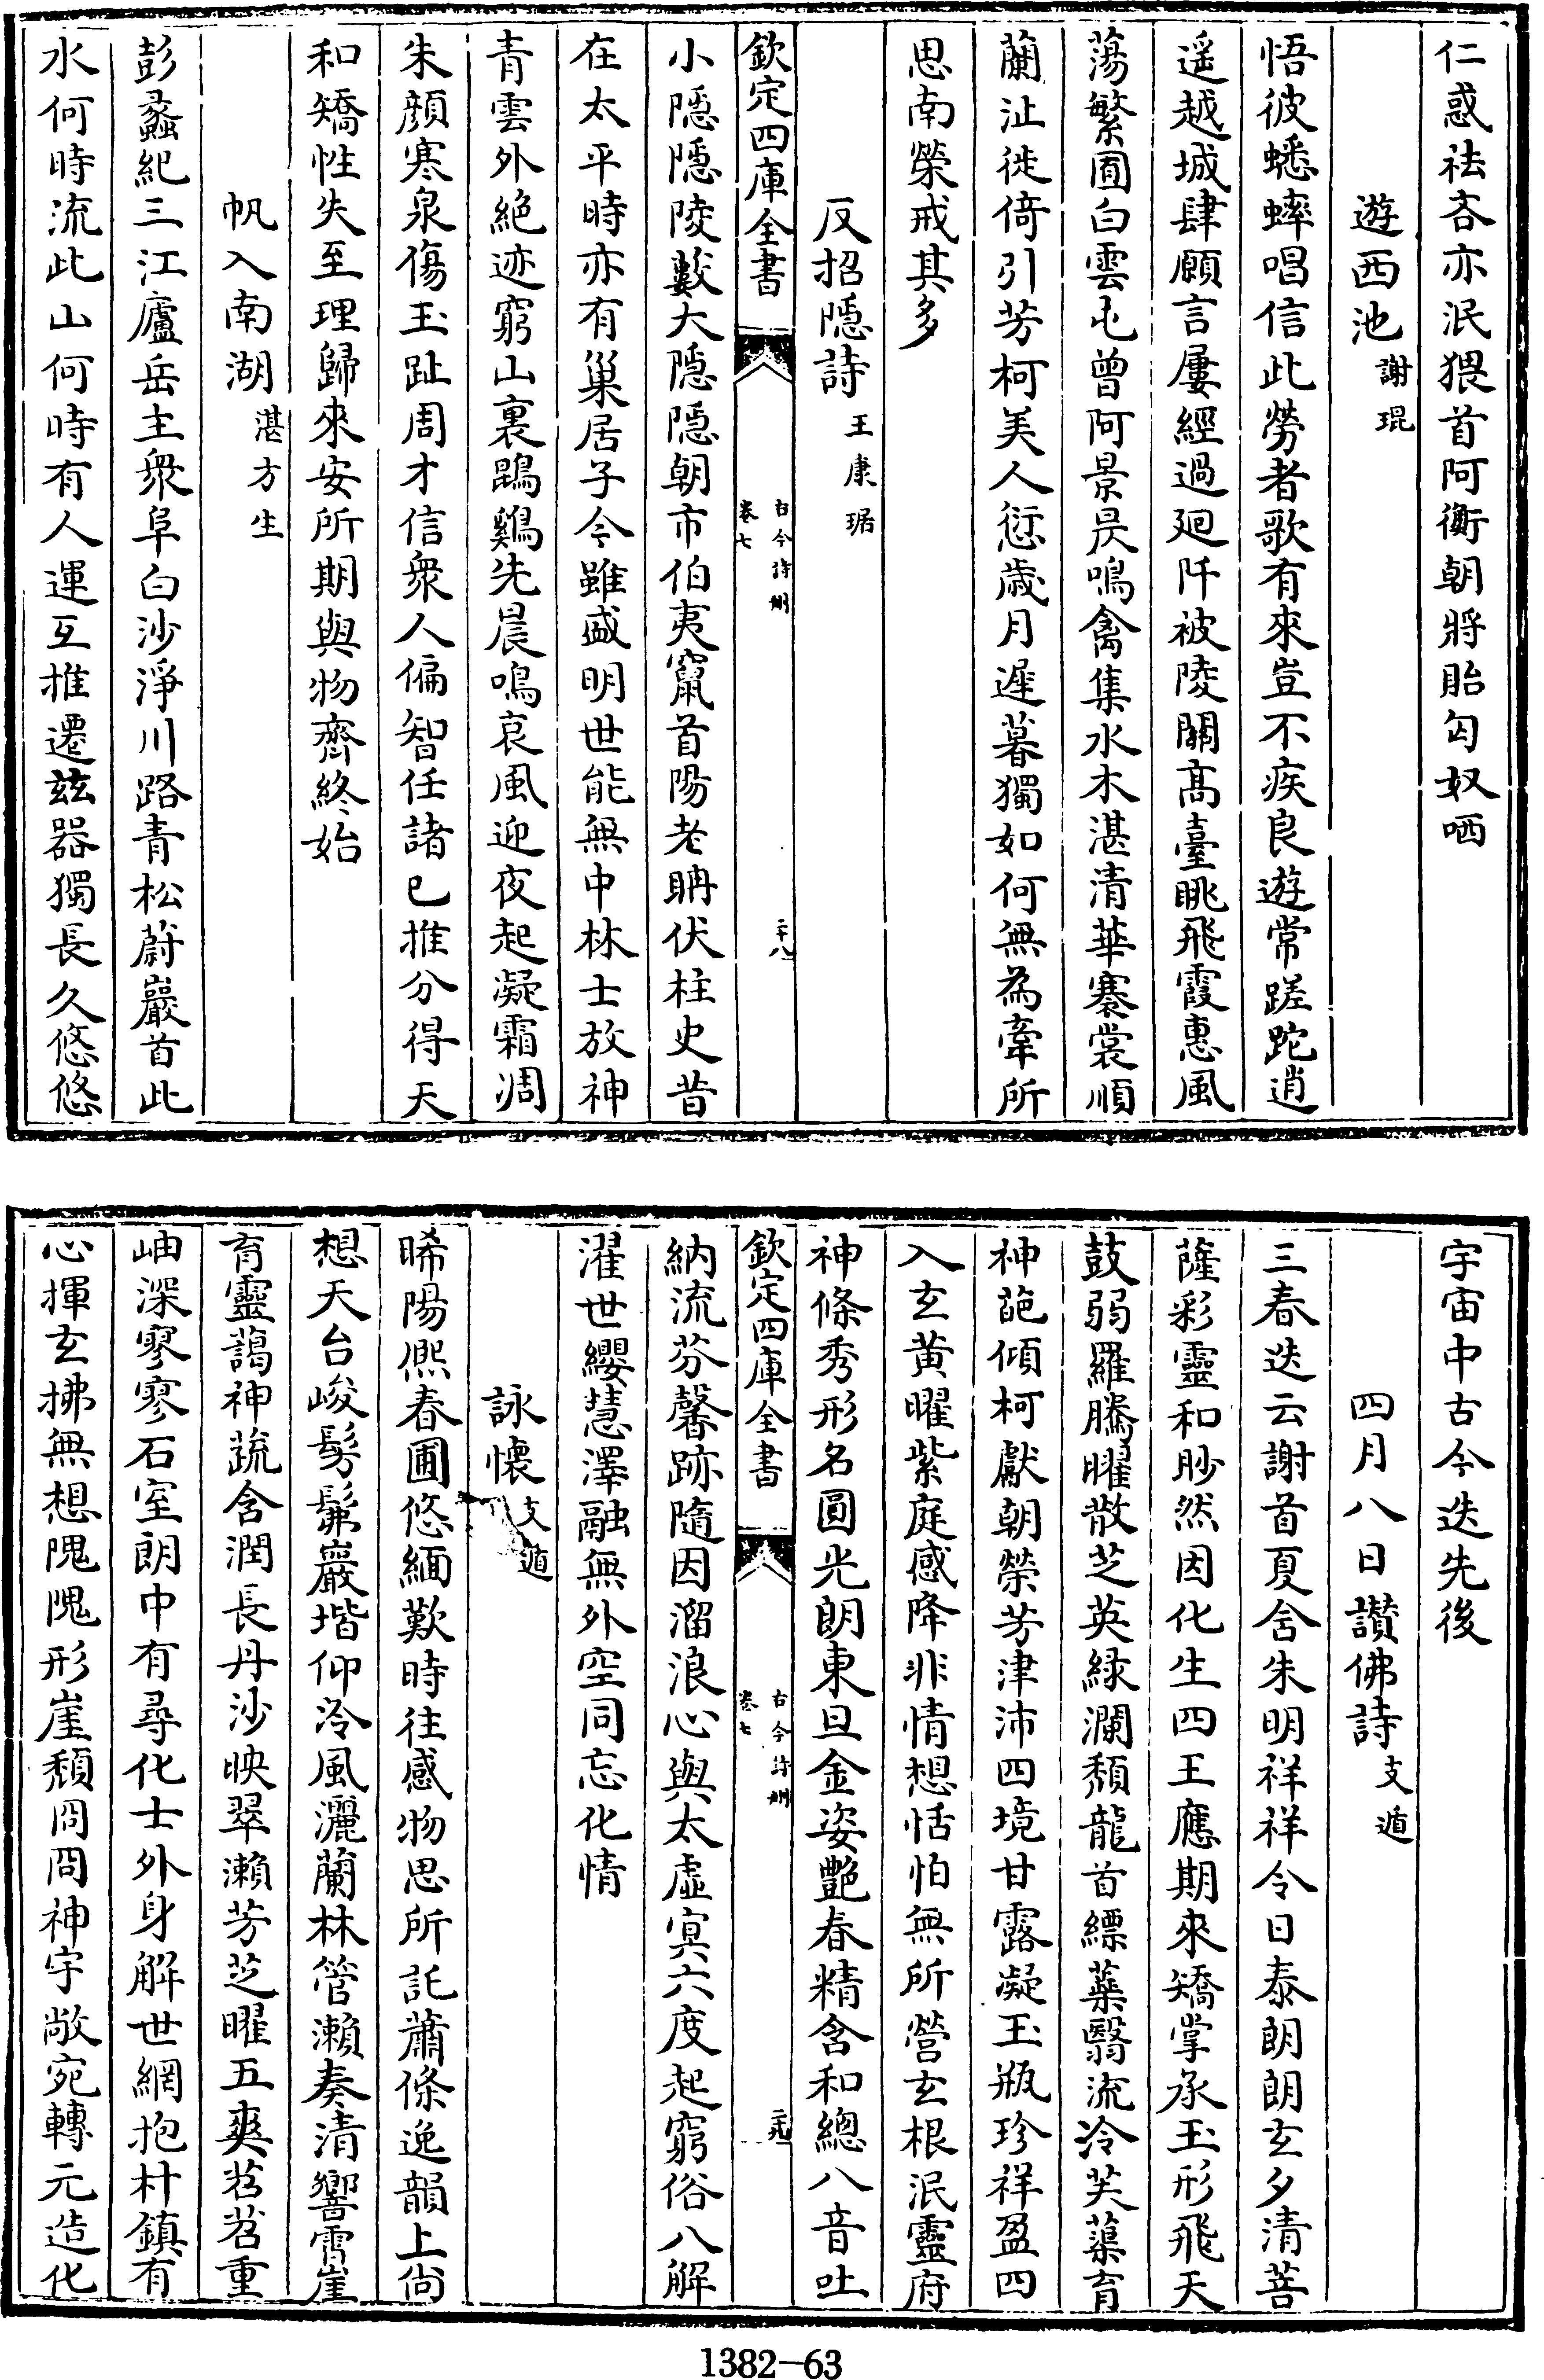 仁惑祛吝亦泯猥首阿衡朝將貽匈奴哂
遊西池謝琨
悟彼蟋蟀唱信此勞者歌有來豈不疾良遊常蹉跎逍
遥越城肆願言屢經過廻阡被陵闕髙臺眺飛霞惠風
蕩繁囿白雲屯曾阿景昃鳴禽集水木湛清華褰裳順
蘭沚徙倚引芳柯美人愆歳月遲暮獨如何無為牽所
思南榮戒其多
反招隠詩王康琚
欽定四庫全書
古今詩刪
卷七
二十八
小隠隠陵藪大隠隠朝市伯夷竄首陽老聃伏柱史昔
在太平時亦有巢居子今雖盛明世能無中林士放神
青雲外絶迹窮山裏鵾鷄先晨鳴哀風迎夜起凝霜凋
朱顔寒泉傷玉趾周才信衆人偏智任諸已推分得天
和矯性失至理歸來安所期與物齊終始
帆入南湖湛方生
彭蠡紀三江廬岳主衆阜白沙淨川路青松蔚巖首此
水何時流此山何時有人運互推遷兹器獨長久悠悠
宇宙中古今迭先後
四月八日讃佛詩支遁
三春迭云謝首夏含朱明祥祥令日泰朗朗玄夕清菩
薩彩靈和眇然因化生四王應期來矯掌承玉形飛天
鼓弱羅騰曜散芝英緑瀾頽龍首縹蘂翳流泠芙蕖育
神葩傾柯獻朝榮芳津沛四境甘露凝玉瓶珍祥盈四
八玄黄曜紫庭感降非情想恬怕無所營玄根泯靈府
神條秀形名圓光朗東旦金姿艶春精含和總八音吐
欽定四庫全書
古今詩刪
卷七
二十九
納流芬馨跡隨因溜浪心與太虛㝠六度起窮俗八解
濯世纓慧澤融無外空同忘化情
詠懷支遁
晞陽熈春圃悠緬歎時往感物思所託蕭條逸韻上尚
想天台峻髣髴巖堦仰泠風灑蘭林管瀨奏清響霄崖
育靈藹神蔬含潤長丹沙映翠瀨芳芝曜五爽苕苕重
岫深寥寥石室朗中有尋化士外身解世網抱朴鎮有
心揮玄拂無想隗隗形崖頽冏冏神宇敞宛轉元造化
1382-63